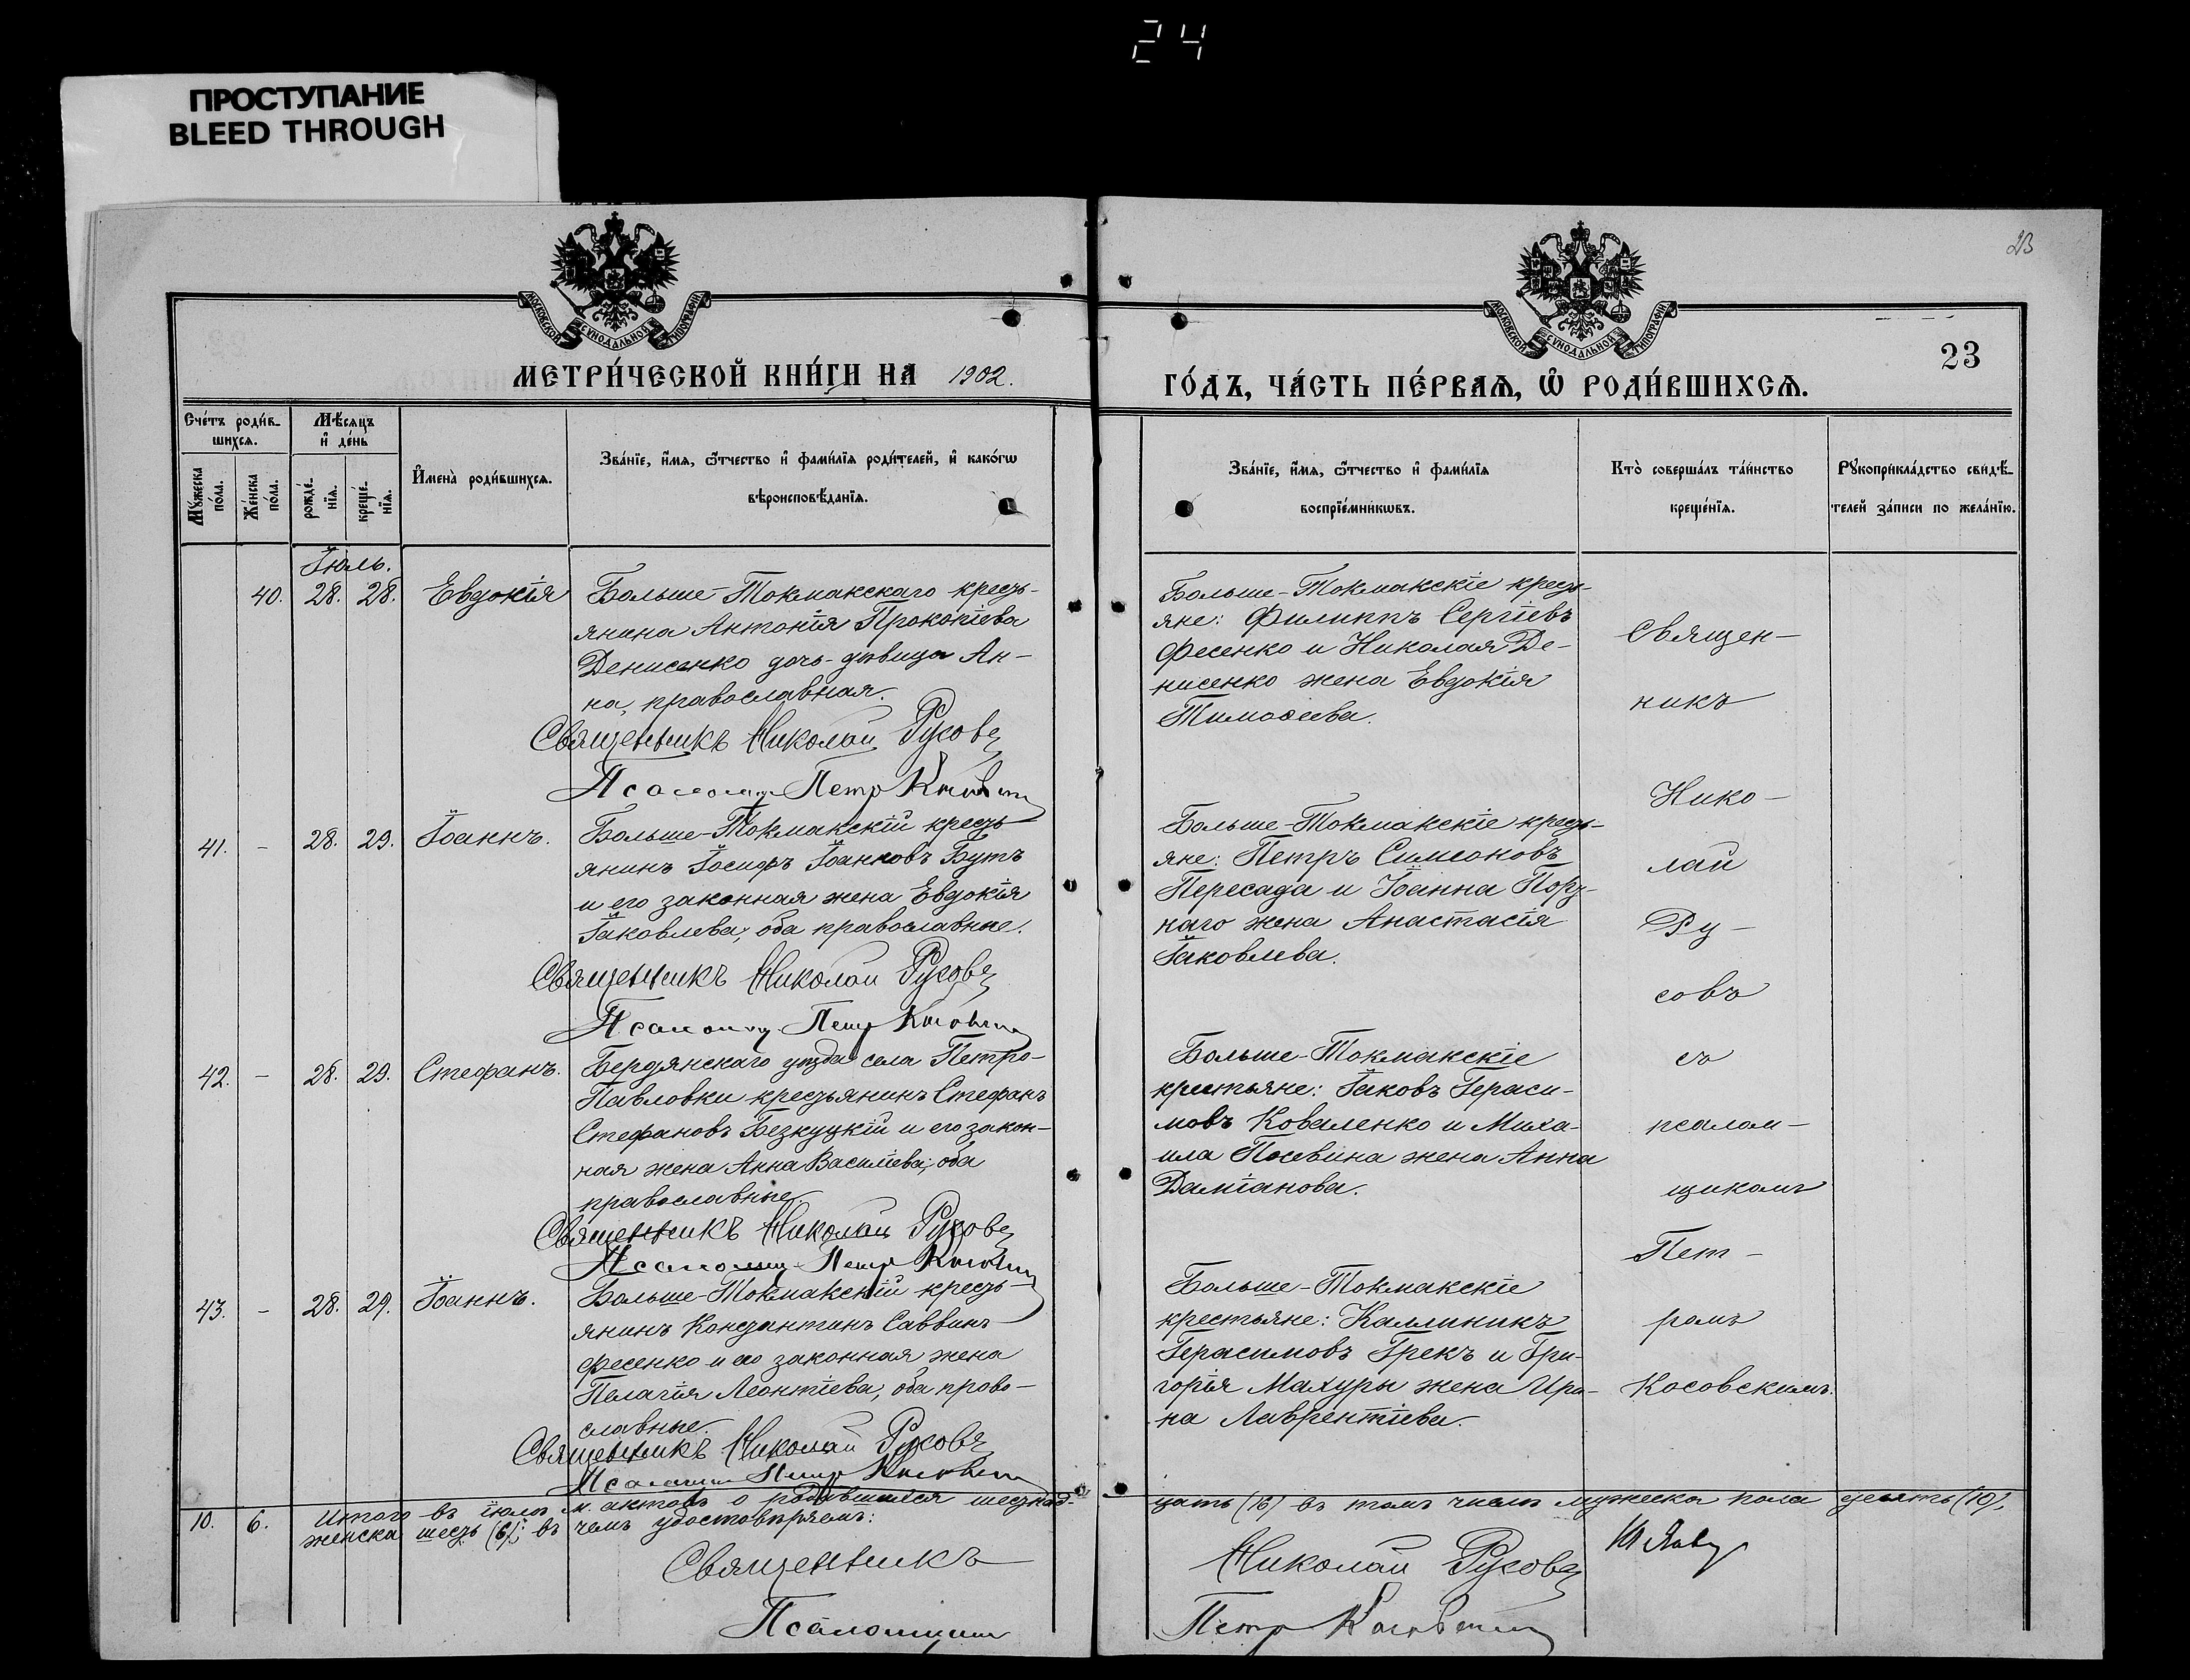 24
ПРОСТУПАНИЕ
BLEED THROUGH
23
МОСКОВСКОЙ СѴНОДАЛЬНОЙ ТИПОГРАФІИ
МОСКОВСКОЙ СѴНОДАЛЬНОЙ ТИПОГРАФІИ
23
МЕТРИ́ЧЕСКОЙ КНИ́ГИ НА 1902.
ГО́ДЪ, ЧА́СТЬ ПЕ́РВАѦ, Ѽ РОДИ́ВШИХСѦ.
Сче́тъ роди́в-
шихсѧ.
Мѣ́сѧцъ
и҆ де́нь
Мꙋ́жеска
по́ла.
Же́нска
по́ла.
рожде́-
нїѧ.
креще́-
нїѧ.
И҆мена̀ роди́вшихсѧ.
Зва́нїе, и҆́мѧ, ѻ҆́тчество и҆ фами́лїѧ роди́телей, и҆ како́гѡ
вѣроисповѣ́данїѧ.
Зва́нїе, и҆́мѧ, ѻ҆́тчество и҆ фами́лїѧ
воспрїе́мникѡвъ.
Кто̀ соверша́лъ та́инство
креще́нїѧ.
Рꙋкоприкла́дство свидѣ́-
телей за́писи по жела́нїю.
Іюль.
40. 28. 28. Евдокія
Больше-Токмакскаго кресть-
янина Антонія Прокопіева
Денисенко дочь-дѣвица Ан-
на, православная.
Священникъ Николай Русовъ
Псаломщ. Петр Косовскій
Больше-Токмакскіе кресть-
яне: Филиппъ Сергіевъ
Фесенко и Николая Де-
нисенко жена Евдокія
Тимоѳеева.
41. - 28. 29. Іоаннъ.
Больше-Токмакскій кресть-
янинъ Іосифъ Іоанновъ Бутъ
и его законная жена Евдокія
Іаковлева; оба православные.
Священникъ Николай Русовъ
Псаломщ. Петр Косовскій
Больше-Токмакскіе кресть-
яне: Петръ Симеоновъ
Пересада и Іоанна
наго жена Анастасія
Іаковлева.
42. - 28. 29. Стефанъ.
Бердянскаго уѣзда села Петро-
Павловки крестьянинъ Стефанъ
Стефановъ Безкуцкій и его закон-
ная жена Анна Василіева; оба
православные.
Священникъ Николай Русовъ
Псаломщ. Петр Косовскій
Больше-Токмакскіе
крестьяне: Іаковъ Гераси-
мовъ Коваленко и Миха-
ила Посевина жена Анна
Даміанова.
43. - 28. 29. Іоаннъ.
Больше-Токмакскій кресть-
янинъ Константинъ Саввинъ
Фесенко и его законная жена
Пелагія Леонтіева, оба право-
славные.
Священникъ Николай Русовъ
Псаломщ. Петр Косовскій
Больше-Токмакскіе
крестьяне: Каллиникъ
Герасимовъ Грекъ и Гри-
горія Махуры жена Ири-
на Лаврентіева.
Священ-
никъ
Нико-
лай
Ру-
совъ
съ
псалом-
щикомъ
Пет-
ромъ
Косовскимъ.
10. 6. Итого въ іюлѣ м. актовъ о родившихся шестнад-
цать (16) въ томъ числѣ мужеска пола десять (10),
женска шесть (6); въ чемъ удостовѣряемъ:
Священникъ Николай Русовъ
Псаломщикъ Петр Косовскій